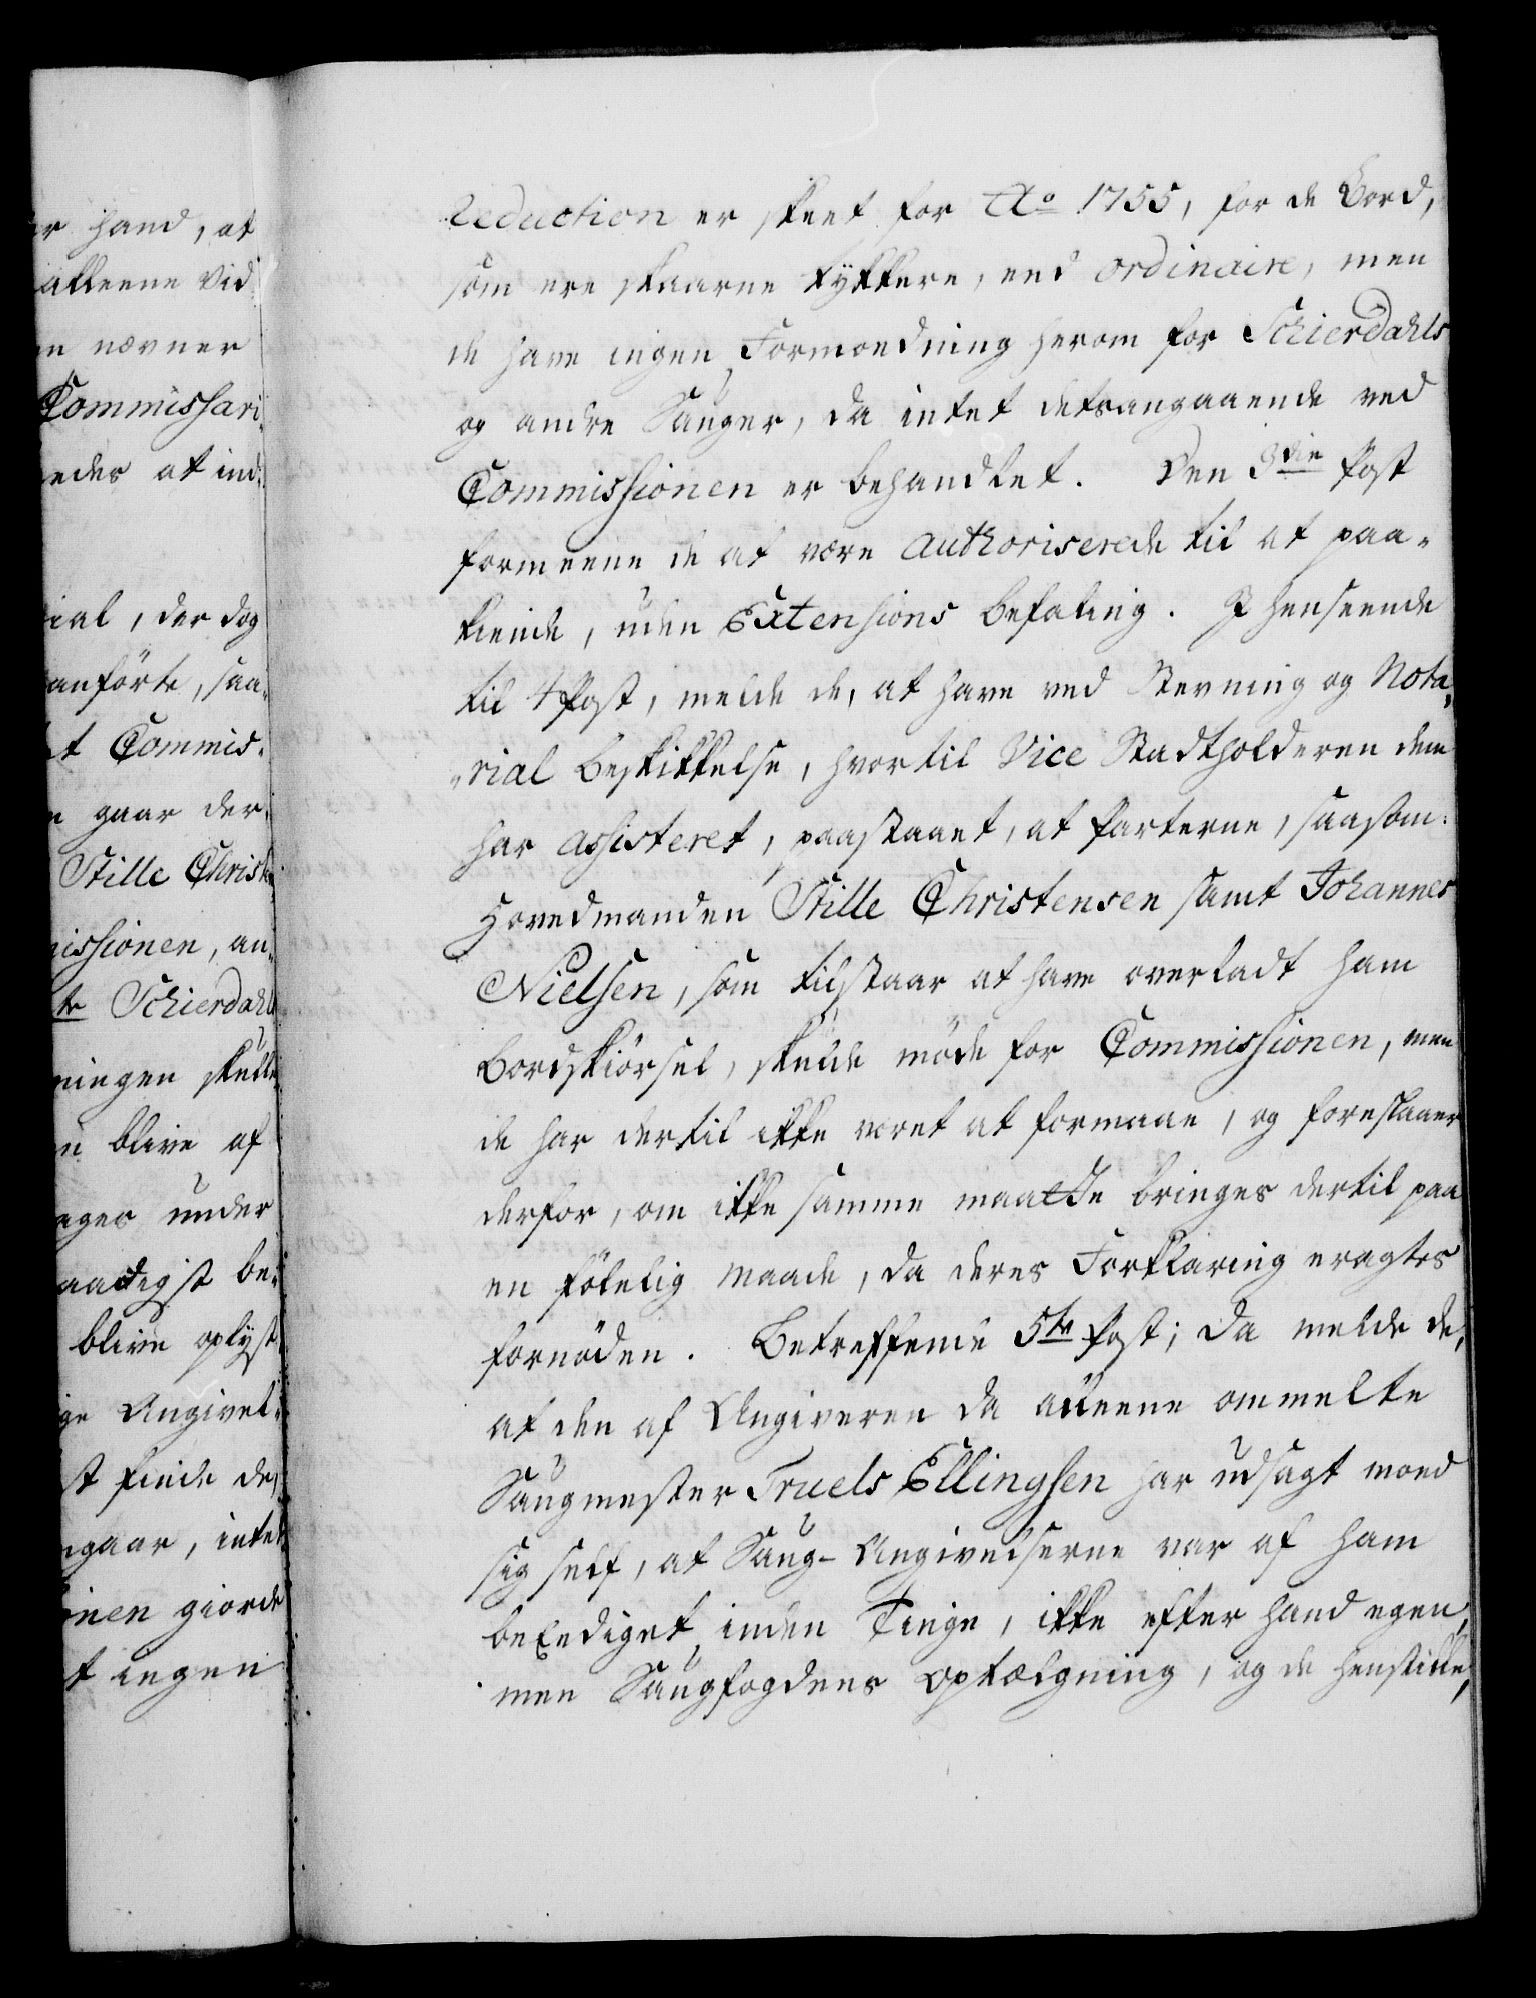 r hand, at
alleene Vid
n nævner
Commissari,
edes at ind-
ial, der dog
anförte, saa-
t Commis-
n gaar der-
Stille Christ
missionen, an-
te Schierdahls
ningen skulle
n blive af
ages under
aadigst be-
blive oplyst
ge Angivel-
st finde de,
ngaar, intet
onen giorde
t ingen
Reduction er skeet for Ao 1755, for de Bord,
som ere skaarne tykkere, end ordinaire, men
de have ingen Formoedning herom for Schierdahls
og andre Sauger, da intet detsangaaende ved
Commissionen er behandlet. Den 3die Post
formeene de at være authoriserede til at paa-
kiende, uden Extensions Befaling. I henseende
til 4 Post, melde de, at have ved Stevning og Nota-
rial Beskikkelse, hvortil Vice Stadtholderen dem
har assisteret, paastaaet, at Parterne, saasom:
Hovedmanden Stille Christensen samt Johannes
Nielsen, som tilstaar at have overladt ham
Bordskiörsel, skulde möde for Commissionen, men
de har dertil ikke været at formaae, og foreslaaer
derfor, om ikke samme maatte bringes dertil paa
en fölelig Maade, da deres Forklaring eragtes
fornöden. Betreffende 5te Post; da melde de,
at den af Angiveren da alleene ommelte
Saugmester Truels Ellingsen har udsagt moed
sig self, at Saug-Angivelserne var af ham
beEdiget inden Tinge, ikke efter hand egen,
men Saugfogdens Optælgning, og de henstille,